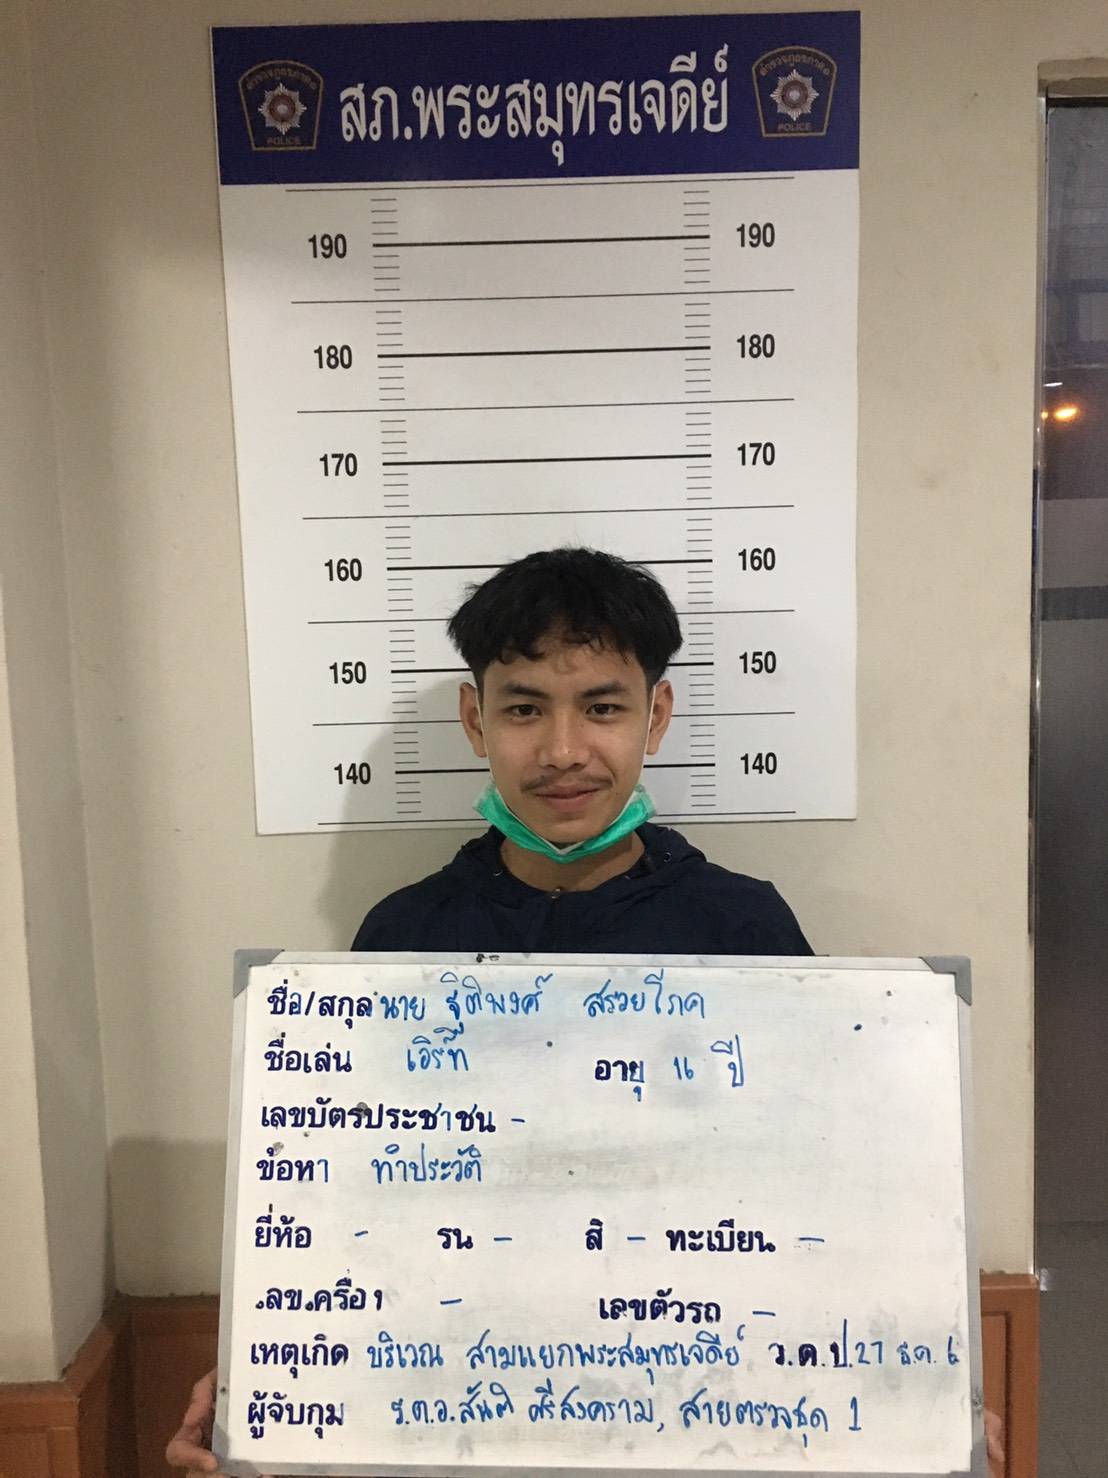 สภ.พระสมุทรเจดีย์
POLICE POLICE
190 190
180 180
170 170
160 160
150 150
140 140
ชื่อ/สกุล นาย ฐิติพงศ์ สรวยโภค
ชื่อเล่น เอิร์ท อายุ 16 ปี
เลขบัตรประชาชน -
ข้อหา ทำประวัติ
ยี่ห้อ - รุ่น - สี - ทะเบียน -
เลขตัวรถ -
เหตุเกิด บริเวณ สามแยกพระสมุทรเจดีย์ ว.ด.ป. 27 ธ.ค. 6
ผู้จับกุม ร.ต.อ.สันติ ศรีสงคราม, สายตรวจชุด 1